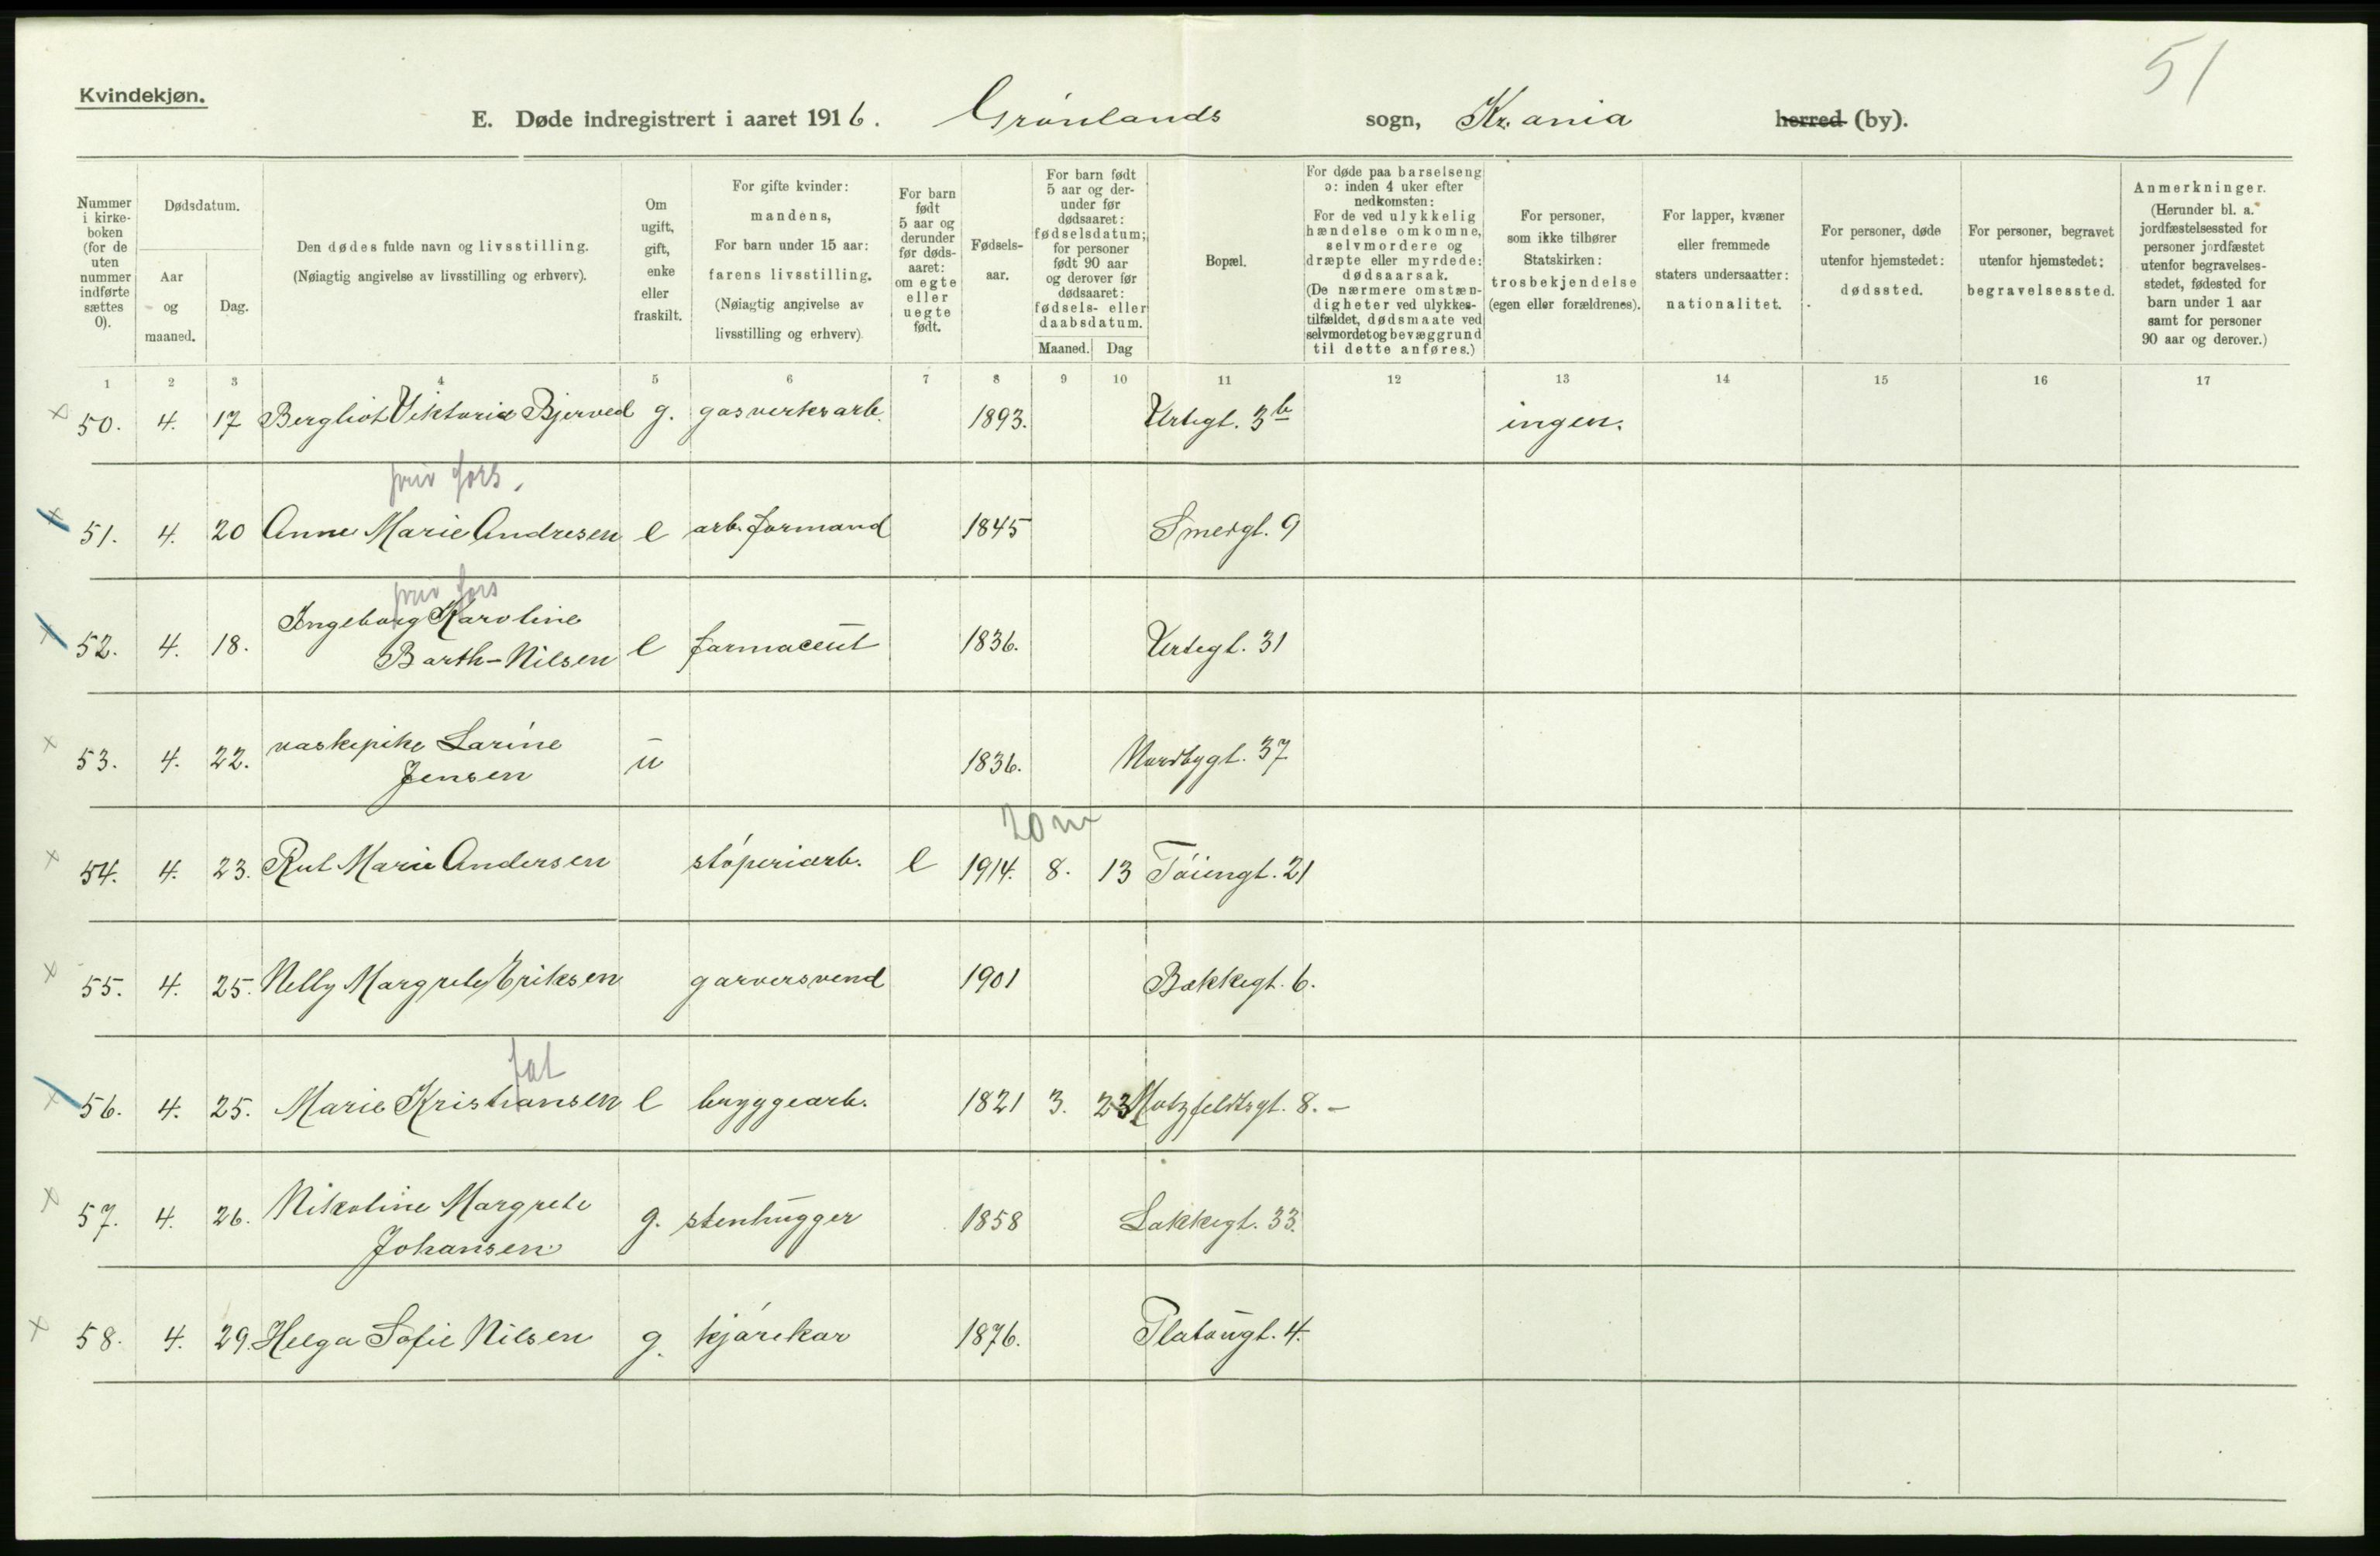 51
Kvindekjøn.
E. Døde indregistrert i aaret 1916. Grønlands sogn, Kr.ania herred (by).
Nummer i kirkeboken (for de uten nummer indførte sættes 0).
Dødsdatum.
Aar og maaned.
Dag.
Den dødes fulde navn og livsstilling.
(Nøiagtig angivelse av livsstilling og erhverv).
Om ugift, gift, enke eller fraskilt.
For gifte kvinder: mandens,
For barn under 15 aar: farens livsstilling.
(Nøiagtig angivelse av livsstilling og erhverv).
For barn født 5 aar og derunder før dødsaaret: om egte eller uegte født.
Fødselsaar.
For barn født 5 aar og derunder før dødsaaret: fødselsdatum; for personer født 90 aar og derover før dødsaaret: fødsels- eller daabsdatum.
Maaned. Dag
Bopæl.
For døde paa barselseng ɔ: inden 4 uker efter nedkomsten:
For de ved ulykkelig hændelse omkomne, selvmordere og dræpte eller myrdede: dødsaarsak.
(De nærmere omstændigheter ved ulykkestilfældet, dødsmaate ved selvmordet og bevæggrund til dette anføres.)
For personer, som ikke tilhører Statskirken: trosbekjendelse (egen eller forældrenes).
For lapper, kvæner eller fremmede staters undersaatter: nationalitet.
For personer, døde utenfor hjemstedet: dødssted.
For personer, begravet utenfor hjemstedet: begravelsessted.
Anmerkninger.
(Herunder bl. a. jordfæstelsessted for personer jordfæstet utenfor begravelsesstedet, fødested for barn under 1 aar samt for personer 90 aar og derover.)
1 2 3 4 5 6 7 8 9 10 11 12 13 14 15 16 17
× 50. 4. 17 Bergliot Viktoria Bjerved g. gasverksarb. 1893. Urtegt. 3b ingen.
priv fors.
× 51. 4. 20 Anne Marie Andresen e arb.formand 1845 Smedgt. 9
priv fors
Ingeborg Karoline
× 52. 4. 18. Barth-Nilsen e farmaceut 1836. Urtegt. 31
vaskepike Larine
× 53. 4. 22. Jensen u 1836. Nordbygt. 37
20 m
× 54. 4. 23. Rut Marie Andersen støperiarb. e 1914. 8. 13 Tøiengt. 21
× 55. 4. 25. Nelly Margrete Eriksen garversvend 1901 Bakkegt. 6.
fat
× 56. 4. 25. Marie Kristiansen e bryggearb. 1821 3. 23 Motzfeldtsgt. 8. –
Nikoline Margrete
× 57. 4. 26. Johansen g. stenhugger 1858 Lakkegt. 33.
× 58. 4. 29. Helga Sofie Nilsen g. kjørekar 1876. Platougt. 4.